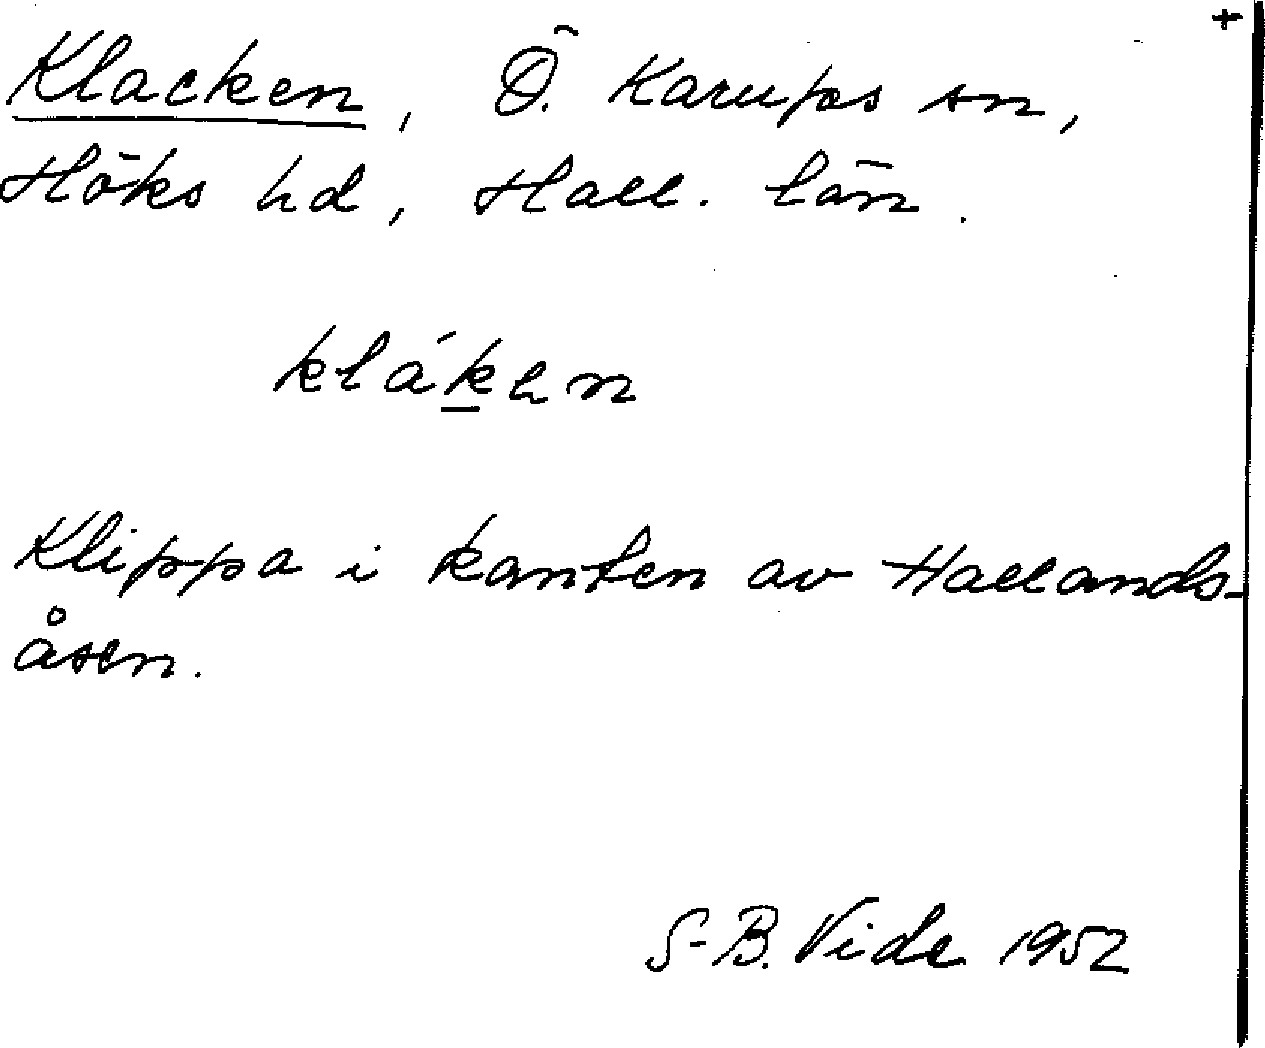 +
Klacken, Ö. Karups sn,
Höks hd, Hall. län.
klákən
Klippa i kanten av Hallands-
åsen.
S-B. Vide 1952